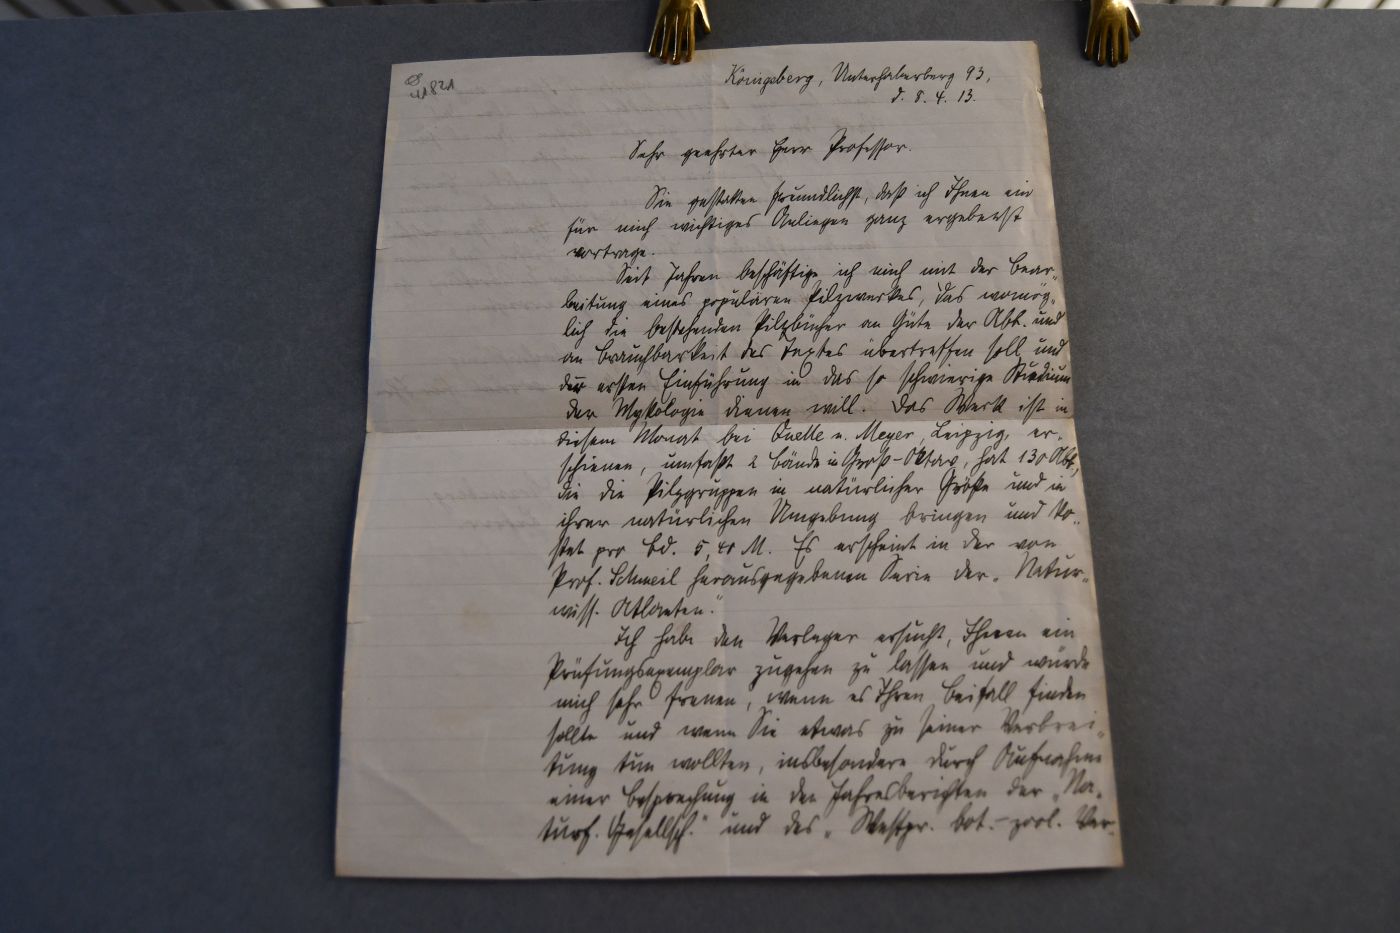 41821
Königsberg, Unterhaberberg 93,
d. 8. 4. 13.
Sehr geehrter Herr Professor.
Sie gestatten freundlichst, daß ich Ihnen ein
für mich wichtiges Anliegen ganz ergebenst
vortrage.
Seit Jahren beschäftige ich mich mit der Bear-
beitung eines populären Pilzwerkes, das womög-
lich die bestehenden Pilzbücher an Güte der Abb. und
an Brauchbarkeit des Textes übertreffen soll und
der ersten Einführung in das so schwierige Studium
der Mykologie dienen will. Das Werk ist in
diesem Monat bei Quelle u. Meyer, Leipzig, er-
schienen, umfaßt 2 Bände in Groß-Oktav, hat 130 Abb.,
die die Pilzgruppen in natürlicher Größe und in
ihrer natürlichen Umgebung bringen und ko-
stet pro Bd. 5,40 M. Es erscheint in der von
Prof. Schmeil herausgegebenen Serie der „Natur-
wiss. Atlanten."
Ich habe den Verleger ersucht, Ihnen ein
Prüfungsexemplar zugehen zu lassen und würde
mich sehr freuen, wenn es Ihren Beifall finden
sollte und wenn Sie etwas zu seiner Verbrei-
tung tun wollten, insbesondere durch Aufnahme
einer Besprechung in den Jahresberichten der „Na-
turf. Gesellsch." und des „Westpr. bot.-zool. Ver-